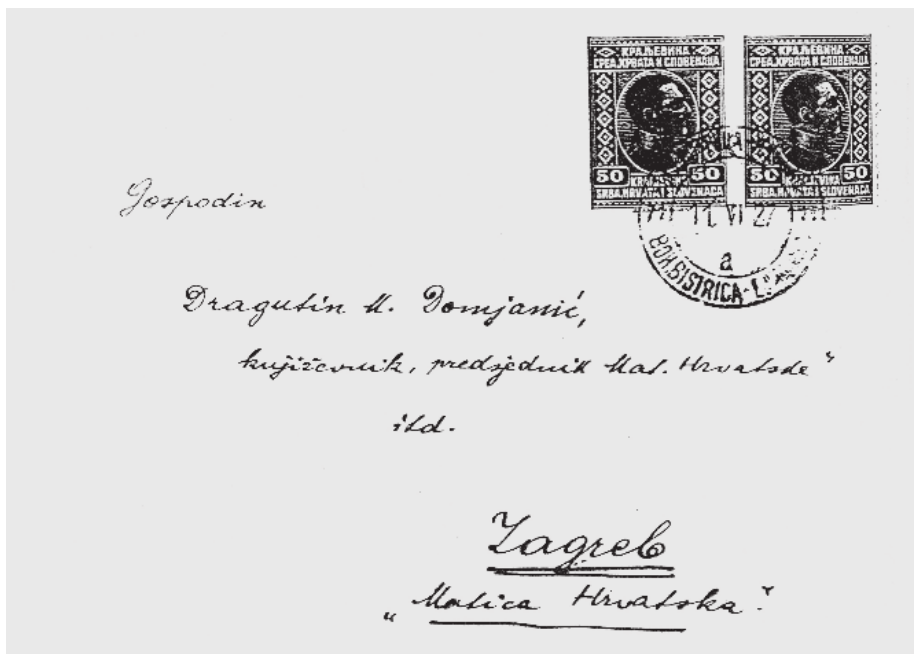 КРАЉЕВИНА
СРБА,ХРВАТА И СЛОВЕНАЦА
50 KRALJEVINA 50
SRBA,HRVATA I SLOVENACA
КРАЉЕВИНА
СРБА,ХРВАТА И СЛОВЕНАЦА
50 KRALJEVINA 50
SRBA,HRVATA I SLOVENACA
11 VI 27
a
BOH.BISTRICA
Gospodin
Dragutin M. Domjanić,
književnik, predsjednik Mat. Hrvatske"
itd.
Zagreb
„Matica Hrvatska".